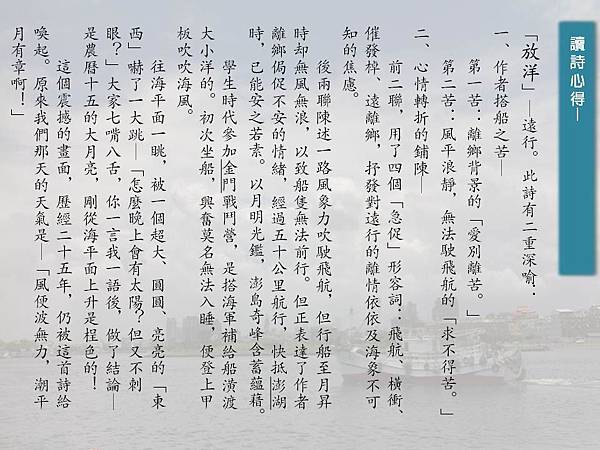 讀詩心得—
「放洋」—遠行。此詩有二重深喻：
一、作者搭船之苦—
第一苦：離鄉背景的「愛別離苦。」
第二苦：風平浪靜，無法駛飛航的「求不得苦。」
二、心情轉折的鋪陳—
前二聯，用了四個「急促」形容詞：飛航、橫衝、
催發棹、遠離鄉，抒發對遠行的離情依依及海象不可
知的焦慮。
後兩聯陳述一路風象力吹駛飛航，但行船至月昇
時却無風無浪，以致船隻無法前行。但正表達了作者
離鄉侷促不安的情緒，經過五十公里航行，快抵澎湖
時，已能安之若素。以月明光鑑，澎島奇峰含蓄蘊藉。
學生時代參加金門戰鬥營，是搭海軍補給船潢渡
大小洋的。初次坐船，興奮莫名無法入睡，便登上甲
板吹吹海風。
往海平面一眺，被一個超大、圓圓、亮亮的「東
西」嚇了一大跳—「怎麼晚上會有太陽？但又不刺
眼？」大家七嘴八舌，你一言我一語後，做了結論—
是農曆十五的大月亮，剛從海平面上升是桯色的！
這個震撼的畫面，歷經二十五年，仍被這首詩給
喚起。原來我們那天的天氣是—「風便波無力，潮平
月有章啊！」